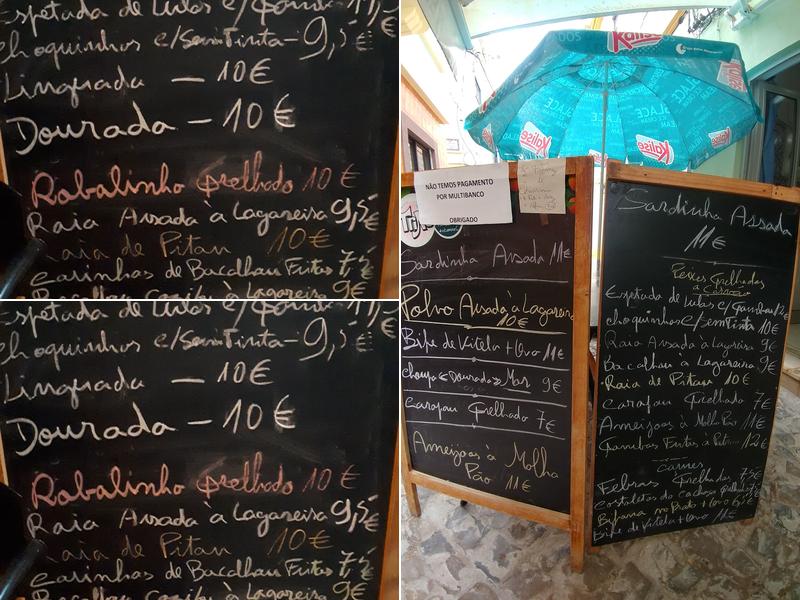 Espetada de Lulas c/Gambas 11,5€
Choquinhos c/SemTinta-9,5€
Linguado - 10€
Dourada - 10€
Robalinho Grelhado 10€
Raia Assada à Lagareira 9,5€
Raia de Pitau 10€
Carinhas de Bacalhau Fritas 7,5€
Bacalhau Cozido à Lagareira 9€
Espetada de Lulas c/Gambas 11,5€
Choquinhos c/SemTinta-9,5€
Linguado - 10€
Dourada - 10€
Robalinho Grelhado 10€
Raia Assada à Lagareira 9,5€
Raia de Pitau 10€
Carinhas de Bacalhau Fritas 7,5€
Bacalhau à Lagareira 9€
Kalise
Kalise
Kalise
NÃO TEMOS PAGAMENTO
POR MULTIBANCO
OBRIGADO
Sardinha Assada 11€
Polvo Assada à Lagareira
10€
Bife de Vitela + Ovo 11€
Choupa < Dourada >> Mar 9€
Carapau Grelhado 7€
Ameijoas à Molha
Pão 11€
Sardinha Assada
11€
Peixes Grelhados
a Carvão
Espetada de Lulas c/ Gambas 12€
choquinhos c/semTinta 10€
Raia Assada à Lagareira 9€
Bacalhau à Lagareira 9€
Raia de Pitau 10€
Carapau Grelhado 7€
Ameijoas à Molh Pão 11€
Gambas Fritas à 12€
Carnes
Febras Grelhadas 7,5€
Costoletas do cachaço grelh
Bifana no Prato + Ovo 6,5€
Bife de Vitela + Ovo 11€